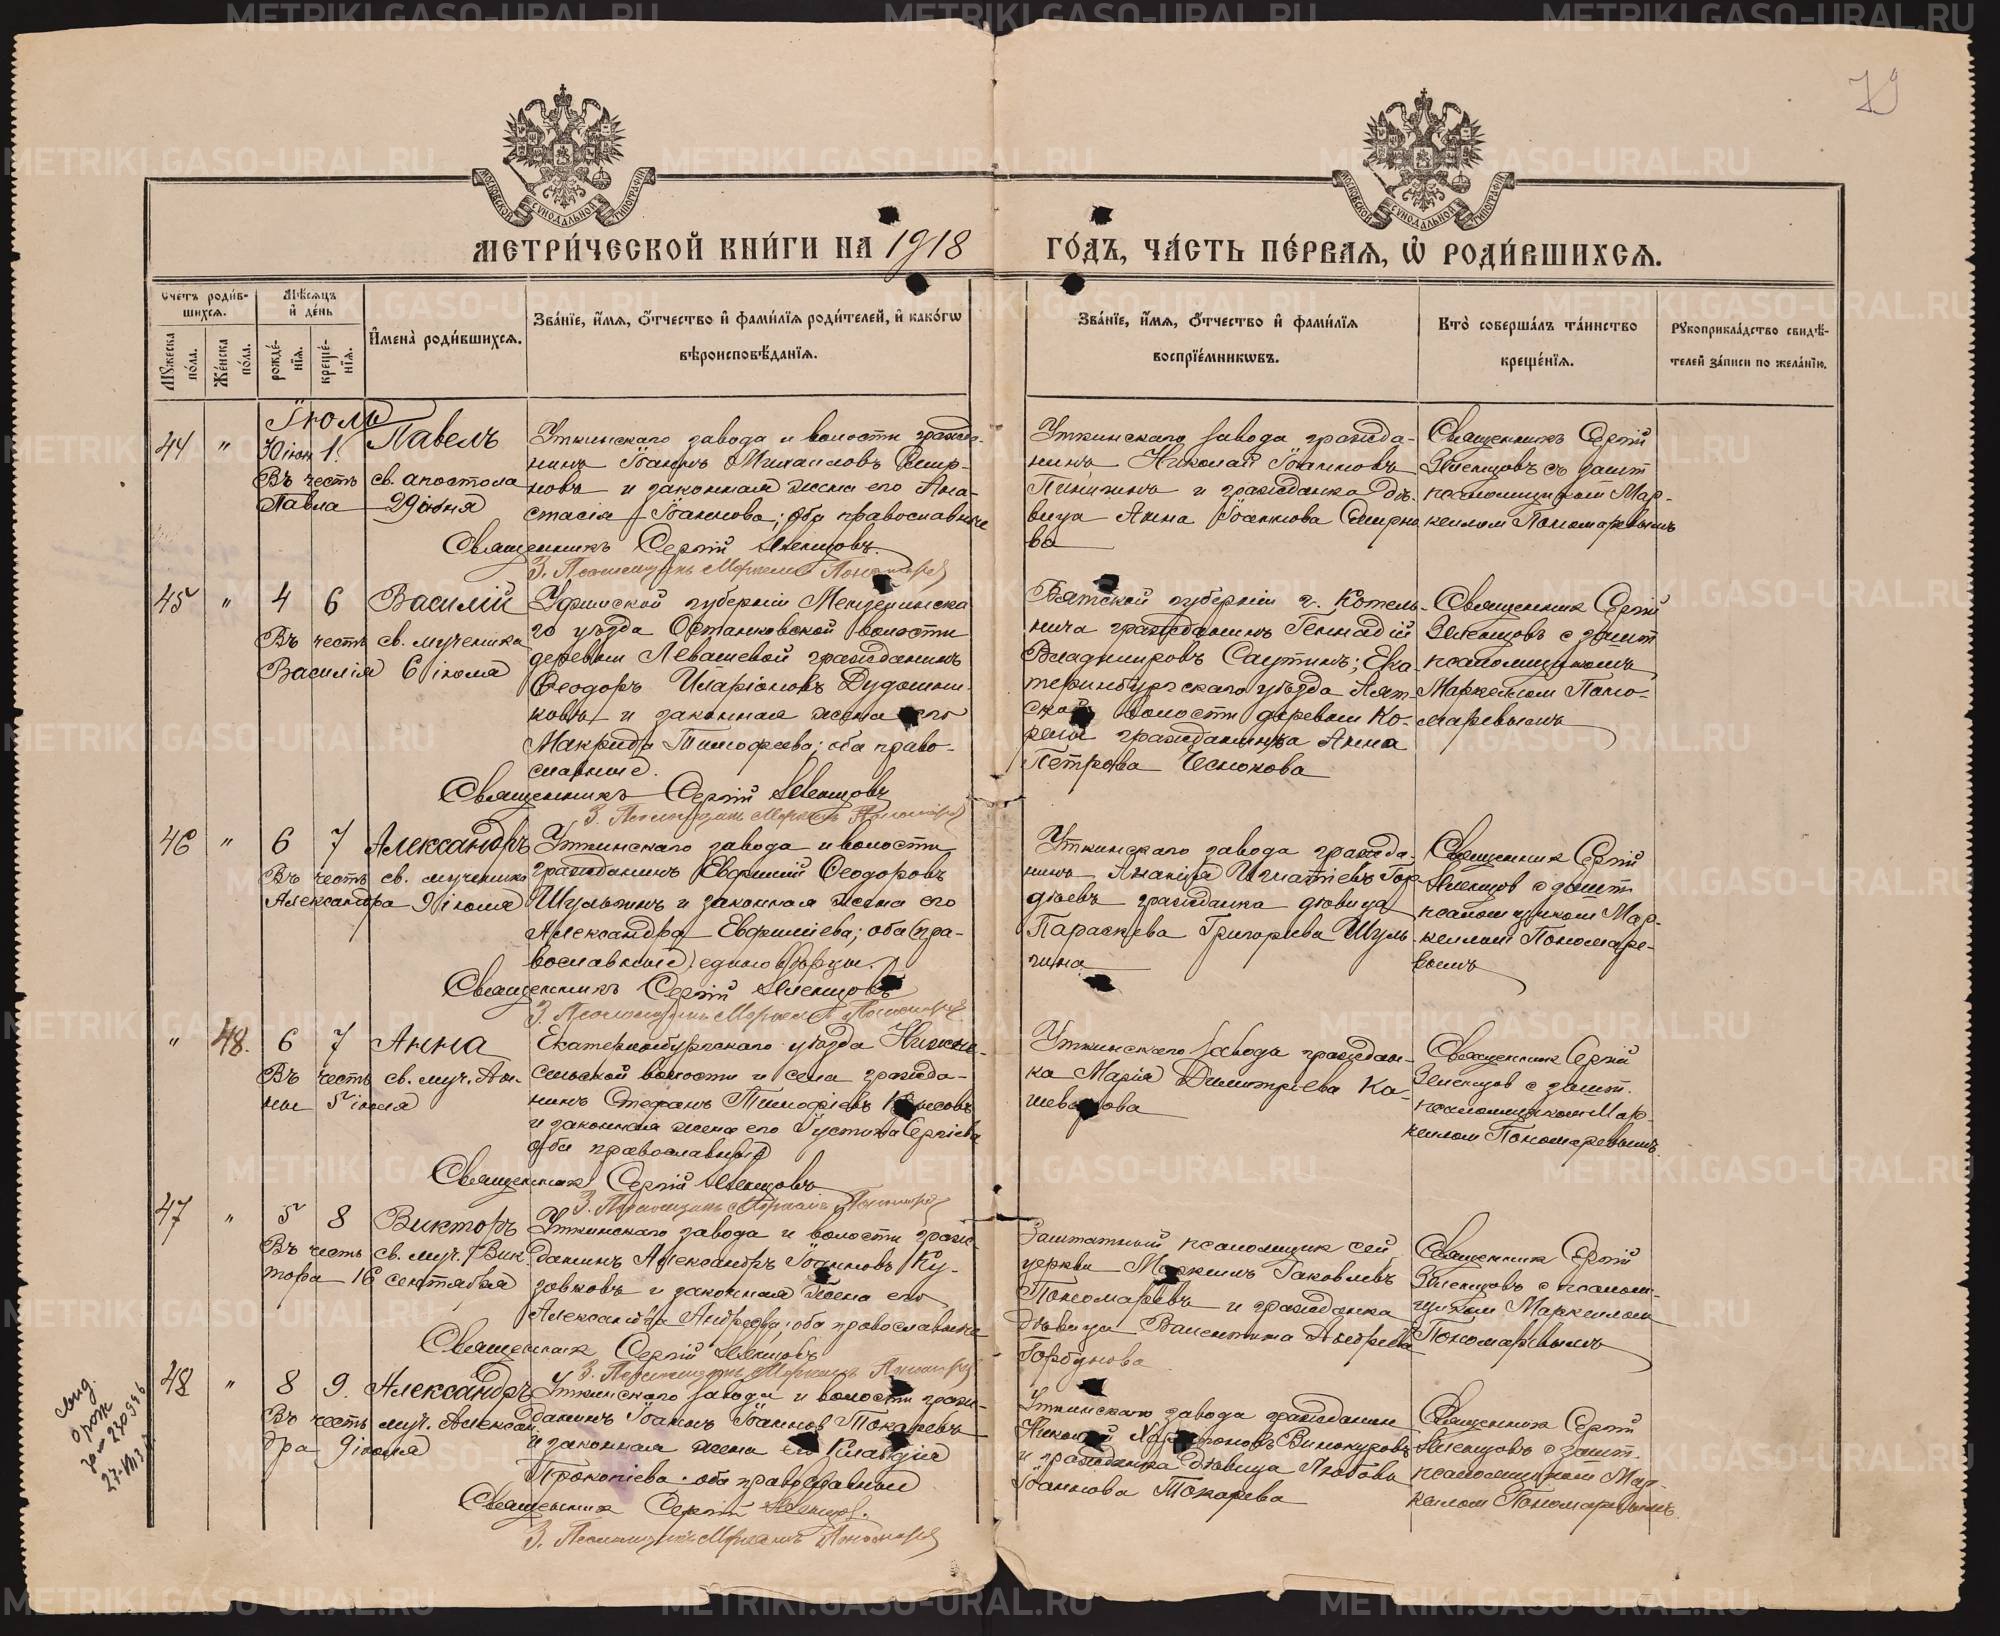 79
МОСКОВСКОЙ СѴНОДАЛЬНОЙ ТИПОГРАФІИ
МОСКОВСКОЙ СѴНОДАЛЬНОЙ ТИПОГРАФІИ
МЕТРИ́ЧЕСКОЙ КНИ́ГИ НА 1918 ГО́ДЪ, ЧА́СТЬ ПЕ́РВАЯ, Ѡ РОДИ́ВШИХСЯ.
Счетъ роди́вшихся.
Му́жеска по́ла.
Же́нска по́ла.
Мѣ́сяцъ и де́нь
рожде́нїя.
креще́нїя.
И҆мена̀ роди́вшихся.
Зва́нїе, и҆́мя, ѻ҆́тчество и҆ фами́лїя роди́телей, и҆ како́гѡ вѣроисповѣ́данїя.
Зва́нїе, и҆́мя, ѻ҆́тчество и҆ фами́лїя воспрїе́мникѡвъ.
Кто̀ соверша́лъ та́инство креще́нїя.
Рукоприкла́дство свидѣ́телей за́писи по жела́нїю.
Іюль
44 " 1. Павелъ
Въ честь св. апостола
Павла 29 іюня
Уткинскаго завода и волости гражда-
нинъ Іоаннъ Михаиловъ Смир-
новъ и законная жена его Ана-
стасія Іоаннова; оба православные
Священникъ Сергій
З. Псаломщикъ Маркеллъ Пономарев
Уткинскаго завода гражда-
нинъ Николай Іоанновъ
и гражданка дѣ-
вица Анна Іоаннова Смирно
ва
Священникъ Сергій
съ зашт
псаломщикомъ Мар-
келломъ Пономаревымъ
45 " 4 6 Василій
Въ честь св. мученика
Василія 6 іюля
Уфимской губерніи Мензелинска
го уѣзда волости
деревни Левашевой гражданинъ
Ѳеодоръ Иларіоновъ Дудошни-
ковъ и законная жена его
Макрида Тимофеева; оба право-
славные.
Священникъ Сергій
З. Псаломщикъ Маркеллъ Пономарев
Вятской губерніи г. Котель-
нича гражданинъ Геннадій
Владимировъ Саутинъ; Ека-
теринбургскаго уѣзда
волости деревни Ко-
гражданинка Анна
Петрова Чеснокова
Священник Сергій
с зашт
псаломщикомъ
Маркеллом Поно-
маревымъ
46 " 6 7 Александръ
Въ честь св. мученика
Александра 9 іюля
Уткинскаго завода и волости
гражданинъ Евфимій Ѳеодоровъ
Шульгинъ и законная жена его
Александра Евфиміева; оба (пра-
вославные) единовѣрцы.
Священникъ Сергій
З. Псаломщикъ Маркеллъ Пономарев
Уткинскаго завода гражда-
нинъ Анания Игнатіевъ Гор-
дѣевъ гражданка дѣвица
Параскева Григориева Шуль-
гина
Священник Сергій
с зашт
псаломщиком Мар-
келлом Пономаре-
вымъ
" 48. 6 7 Анна
Въ честь св. муч. Ан-
ны 5 іюля
Екатеринбургскаго уѣзда Нижне-
сельской волости и села гражда-
нинъ Стефанъ Тимофѣевъ
и законная жена его Іустина Сергіева
оба православные
Священник Сергій
З. Псаломщикъ Маркеллъ Пономарев
Уткинскаго завода граждан-
ка Марія Димитріева Ка-
Священник Сергій
с зашт.
псаломщиком Мар-
келлом Пономаревымъ
47 " 5 8 Викторъ
Въ честь св. муч. Вик-
тора 16 сентября
Уткинскаго завода и волости граж-
данинъ Александръ Іоанновъ Ку-
зовковъ и законная жена его
Александра Андреева; оба православные
Священник Сергій
З. Псаломщикъ Маркеллъ Пономарев
Заштатный псаломщик сей
церкви Маркеллъ Іаковлевъ
Пономаревъ и гражданка
дѣвица Валентина Андреева
Горбунова
Священник Сергій
с псалом-
щиком Маркеллом
Пономаревымъ
48 " 8 9. Александръ
Въ честь муч. Алексан-
дра 9 іюля
Уткинскаго завода и волости граж-
данинъ Іоаннъ Іоаннов Токаревъ
и законная жена его Клавдія
Прокопіева. оба православные
Священник Сергій
З. Псаломщикъ Маркеллъ Пономарев
Уткинскаго завода гражданин
Николай Винокуровъ
и гражданка дѣвица Любовь
Іоаннова Токарева
Священник Сергій
с зашт.
псаломщиком Мар-
келлом Пономаревымъ.
METRIKI.GASO-URAL.RU